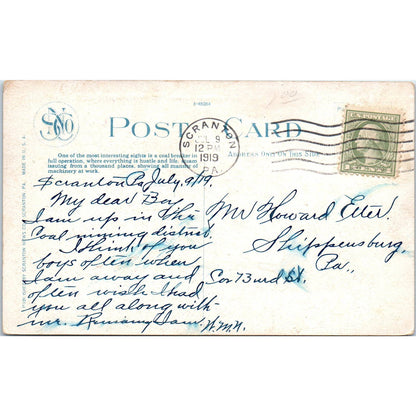 POST CARD
One of the most interesting sights is a coal breaker in
full operation, where everything is hustle and life, steam
issuing from a thousand places, showing all manner of
machinery at work.
ADDRESS ONLY ON THIS SIDE
SCRANTON
9
12 PM
1919
PA.
U.S. POSTAGE
MADE IN U.S.A.
SCRANTON, PA.
Scranton Pa July, 9/19.
My dear Boy
I am up in this
Coal mining district
I think of you
boys often when
I am away and
often wish I had
you all along with
me. I am,
W.M.N.
Mr Howard Etter.
Shippensburg,
Pa.,
Cor 3 and St.